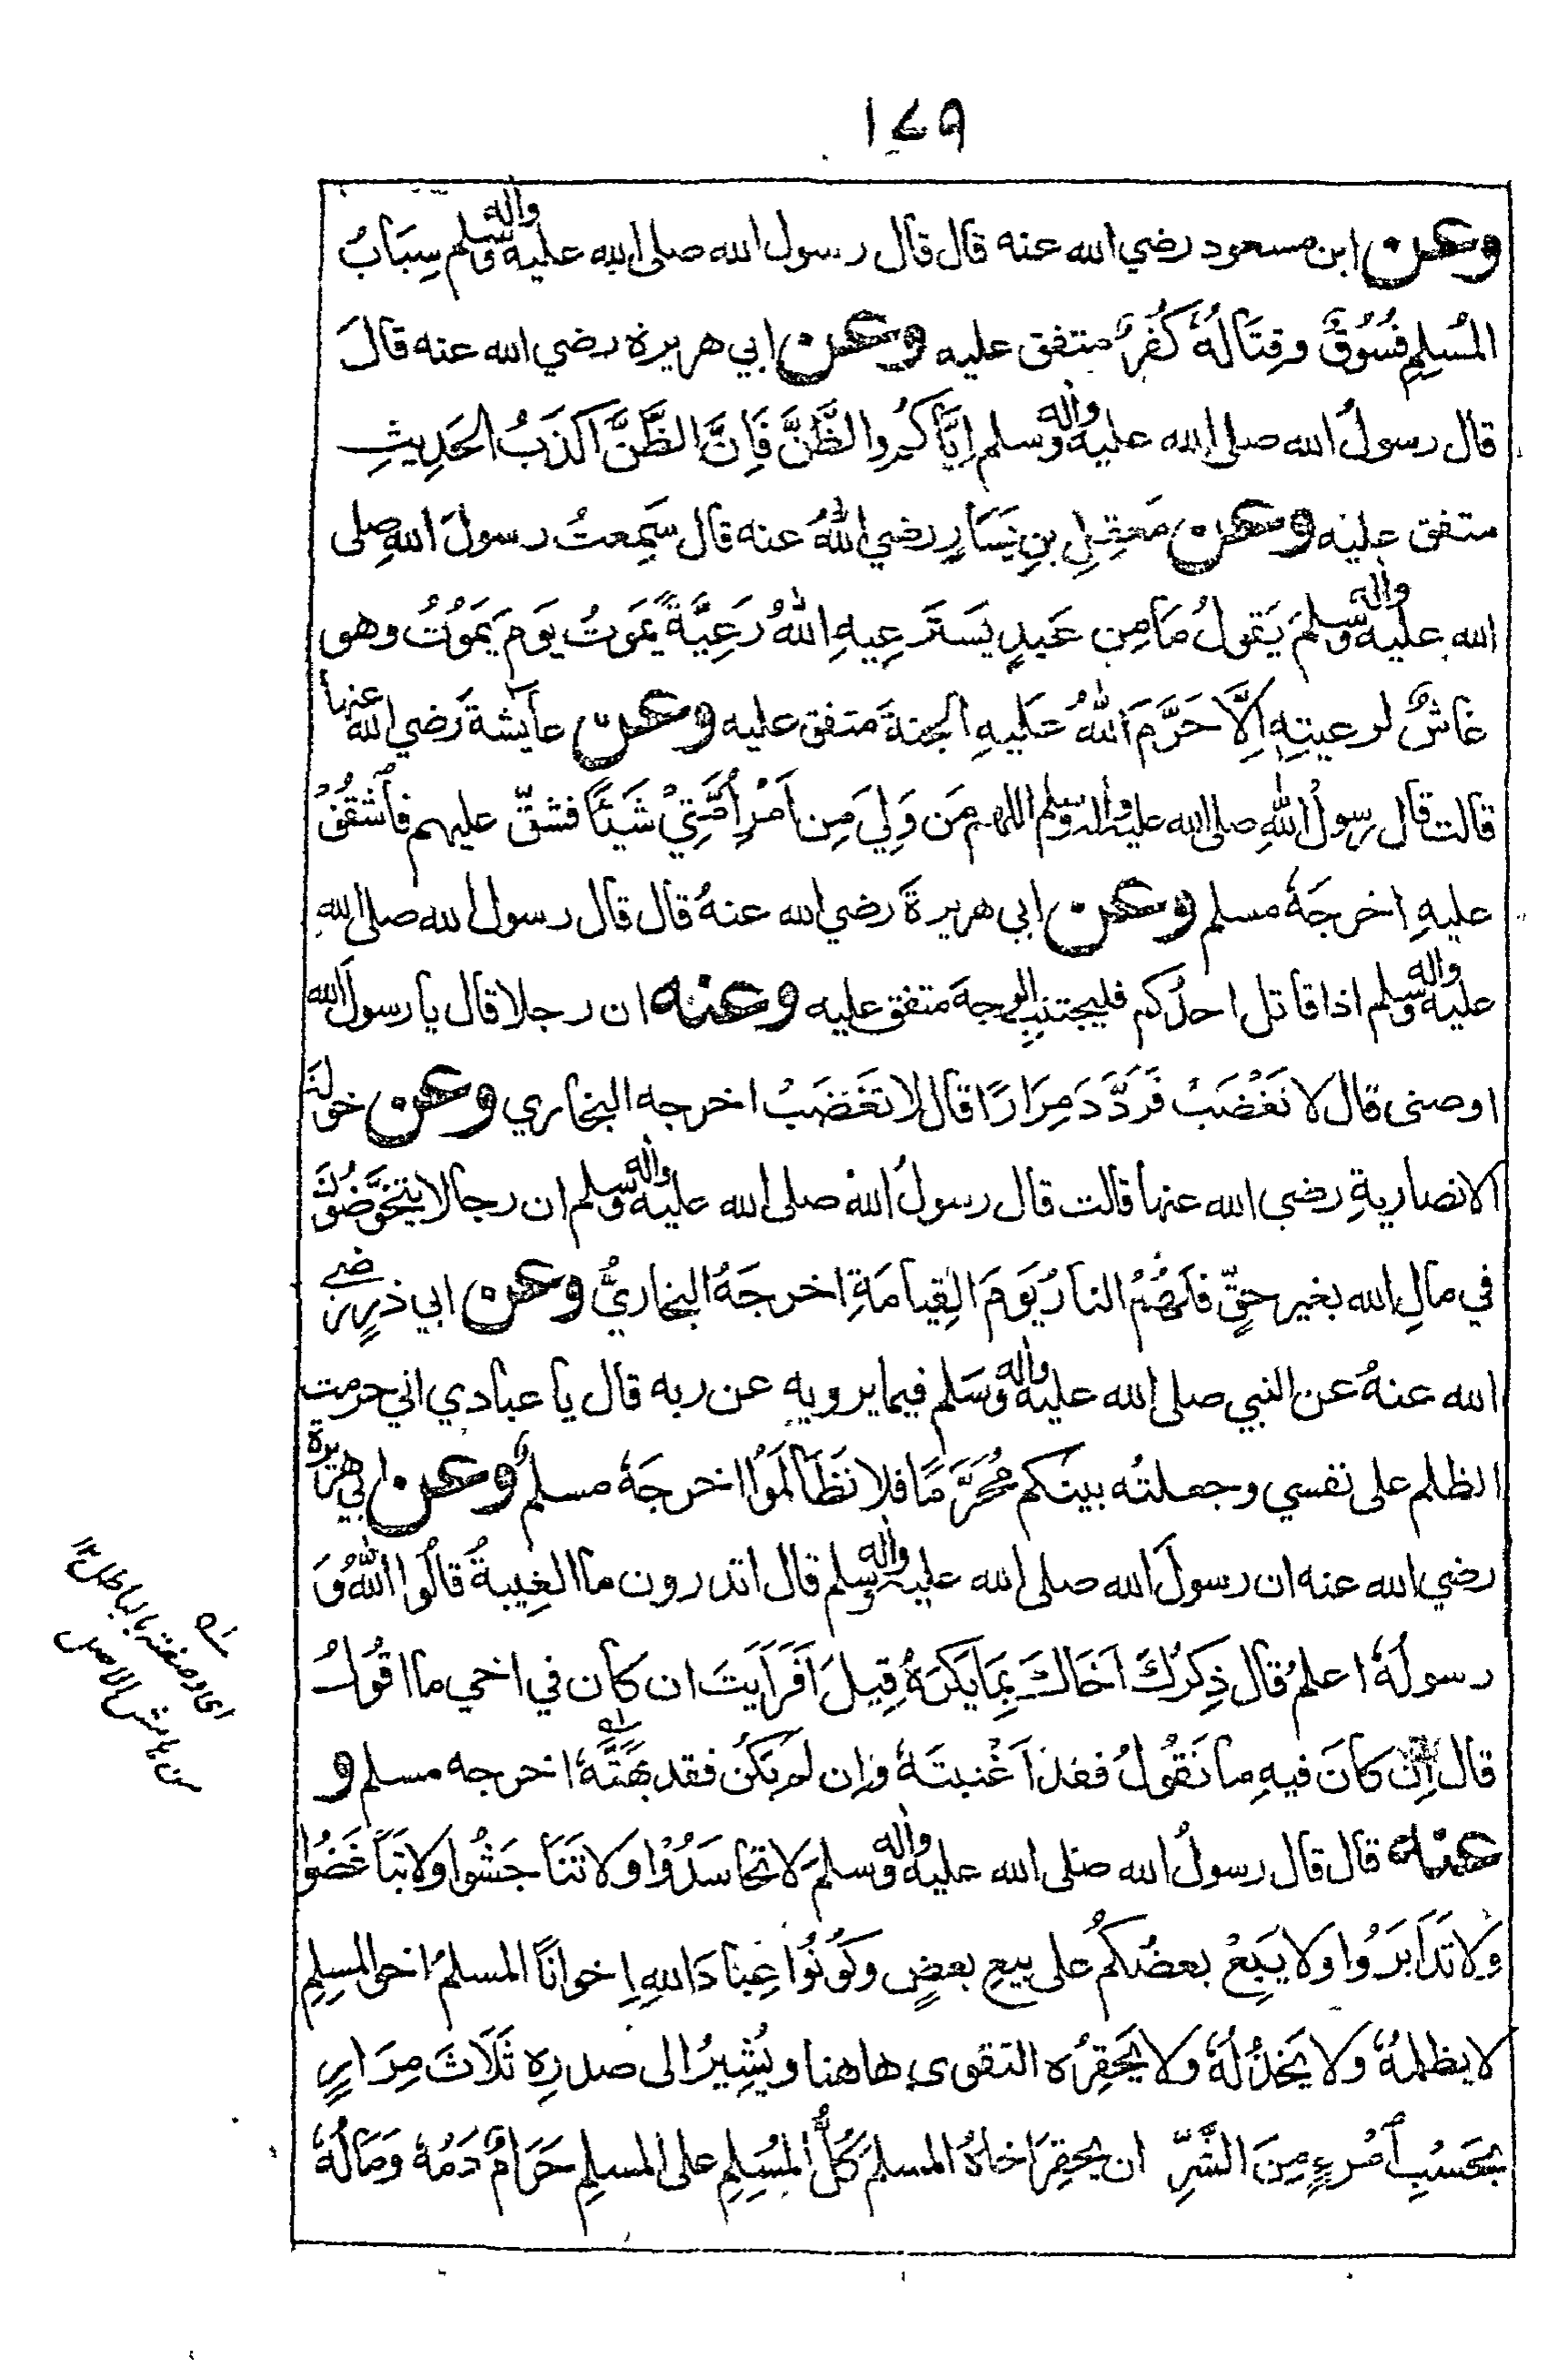 ١٧٩
وعن ابن مسعود رضي الله عنه قال قال رسول الله صلى الله عليه وآله وسلم سِبَابُ
المُسْلِمِ فُسُوقٌ وقِتَالُهُ كُفْرٌ متفق عليه وعن ابي هريرة رضي الله عنه قالَ
قال رسولُ الله صلى الله عليه وآله وسلم إِيَّاكُم والظَّنَّ فَإِنَّ الظَّنَّ اَكذَبُ الحَدِيثِ
متفق عليه وعن مَعقِلِ بنِ يَسَارٍ رضي اللهُ عنه قال سَمِعتُ رسولَ اللهِ صلى
الله عليه وآله وسلمَ يَقولُ مَا مِن عَبدٍ يَستَرعِيهِ اللهُ رَعِيَّةً يَمُوتُ يَومَ يَمُوتُ وهو
غاشٌ لرعيتِهِ اِلَّا حَرَّمَ اللهُ عليهِ الجنةَ متفق عليه وعن عآيشةَ رَضي الله عنها
قالت قال رسولُ اللهِ صلى الله عليه واله وسلم اللهم مَن وَلِيَ مِن اَمْرِ اُمَّتِيْ شَيئًا فشقّ عليهم فاَشْقُقْ
عليهِ اخرجَهُ مسلم وعن ابي هريرةَ رضي الله عنهُ قال قال رسول الله صلى الله
عليه وآله وسلم اذا قاتل احدُكم فليجتنبِ الوجهَ متفق عليه وعنه ان رجلا قال يا رسولَ الله
اوصنى قال لا تَغْضَبْ فَرَدَّدَ مِرَارًا قال لا تَغضَبْ اخرجه البخاري وعن خولةَ
الانصاريةِ رضي الله عنها قالت قال رسولُ الله صلى الله عليه وآله وسلم ان رجالا يتخَوَّضُونَ
في مالِ الله بغير حقٍّ فلَهُمُ النارُ يَومَ القِيامَةِ اخرجَهُ البخاريُّ وعن ابي ذرٍ رضي
الله عنهُ عن النبي صلى الله عليه وآله وسَلم فيما يرويهِ عن ربه قال يا عبادي اني حرمت
الظلم على نفسي وجعلتُه بينكم مُحَرَّمًا فلا تَظَالَمَوُا اخرجَهُ مسلمٌ وعن ابي هريرة
رضي الله عنه ان رسولَ الله صلى الله عليه وآله وسلم قال اتدرون ما الغِيبةُ قالُوا اللهُ وَ
رسولُهُ اعلمُ قال ذِكرُكَ اَخَاكَ بِمَا يَكرَهُ قِيلَ اَفَرَاَيتَ ان كان في اخي ما اقُولُ
قال اِن كانَ فيهِ ما تَقُولُ فقد اَغْتبتَهُ وان لم تكُن فقد بَهَتَّهُ اخرجه مسلم و
عنه قال قال رسولُ الله صلى الله عليه وآله وسلمَ لا تحاسَدُوْا ولا تَنَاجَشُوا ولا تَبَاغَضُوا
ولا تَدَابَرُوا ولا يَبِعْ بعضُكم على بيعِ بعضٍ وكُونُوا عِبادَ اللهِ اِخوانًا المسلمُ اخو المسلِمِ
لا يظلمهُ ولا يَخذُلُهُ ولا يَحقِرُه التقوى هاهنا ويُشِيرُ الى صدرِهِ ثَلَاثَ مِرَارٍ
بحَسْبِ اَمْرِءٍ مِنَ الشَّرِّ ان يحقِرَ اخاهُ المسلمَ كُلُّ المُسِلِمِ على المسلمِ حَرَامٌ دَمُهُ وَمَالُهُ
اى وصفته بالباطل ١٢
من هامش الاصل